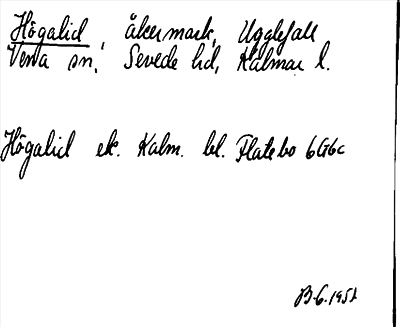 Högalid, åkermark, Ugglefall
Vena sn, Sevede hd, Kalmar l.
Högalid ek. Kalm. bl. Flatebo 6G6c
B.G. 1952